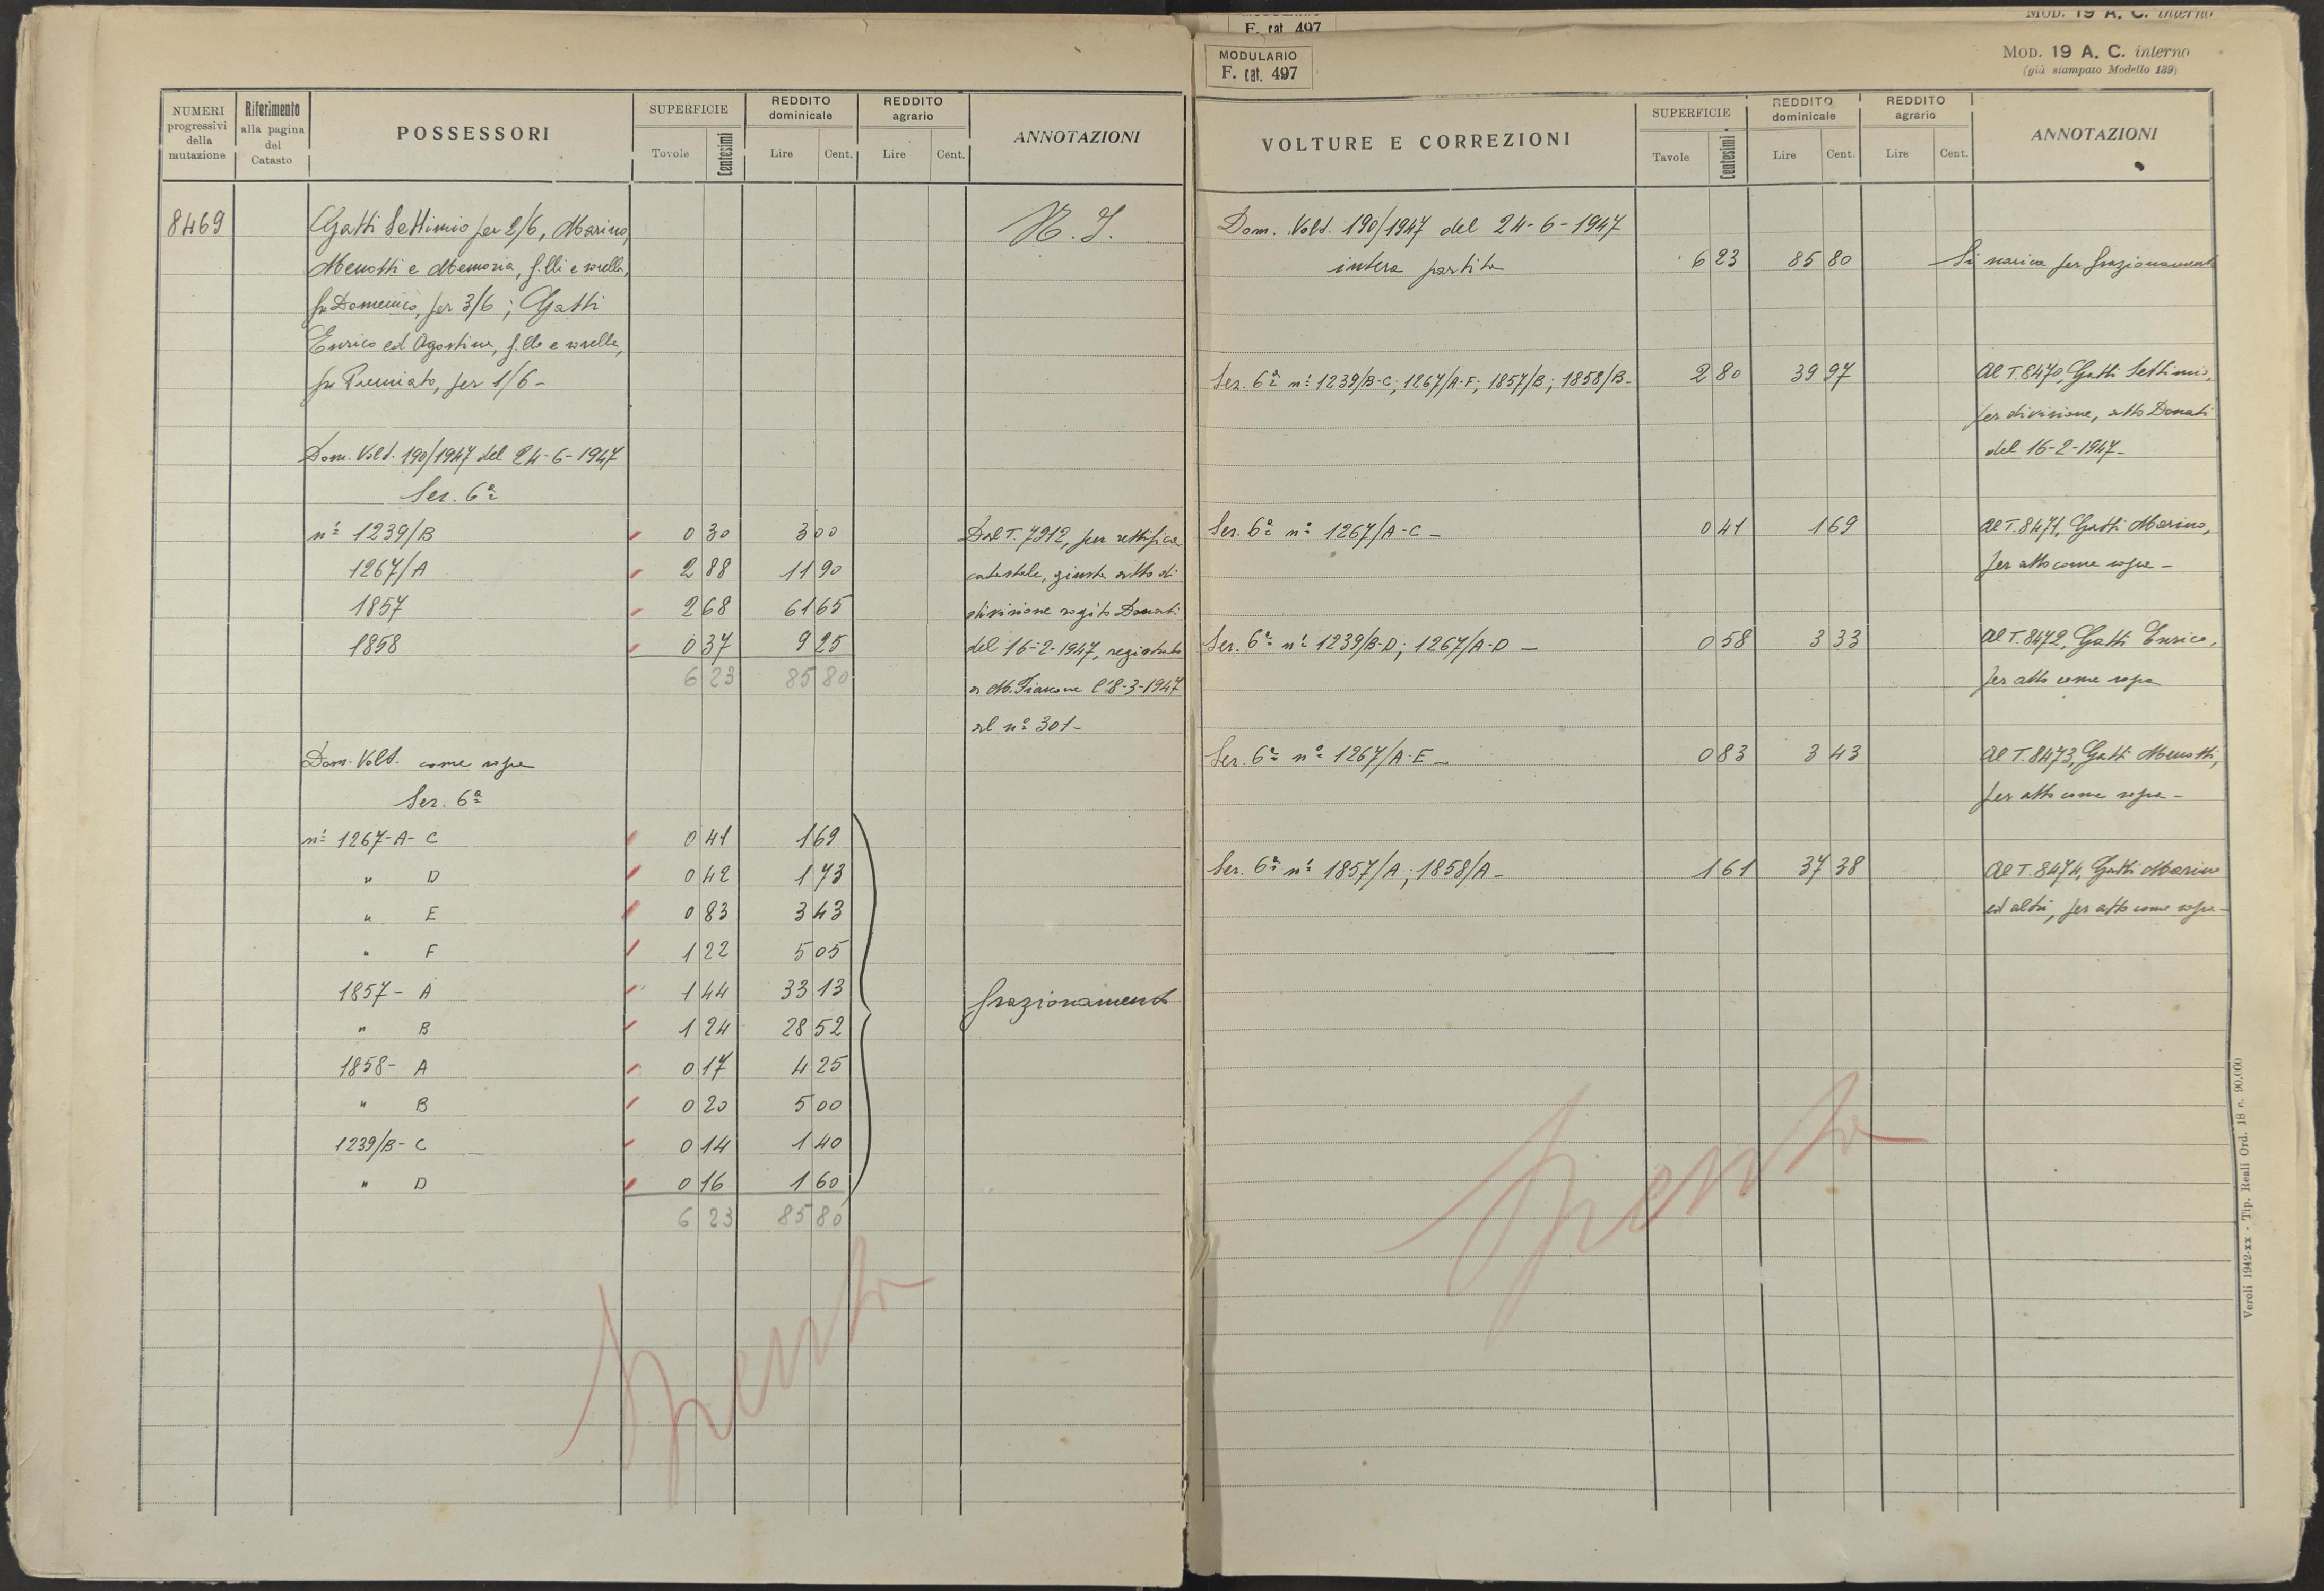 MODULARIO
F. cat. 497
MOD. 19 A. C. interno
NUMERI progressivi della mutazione
Riferimento alla pagina del Catasto
POSSESSORI
SUPERFICIE
Tavole Centesimi
REDDITO dominicale
Lire Cent.
REDDITO agrario
Lire Cent.
ANNOTAZIONI
8469 Gatti Settimio per 2/6, Marino, N. I.
Menotti e Memoria, f.lli e sorella,
fu Domenico, per 3/6; Gatti
Enrico ed Agostina, f.llo e sorella,
fu Premiato, per 1/6-
Dom. Volt. 190/1947 del 24-6-1947
Sez. 6ª
nⁱ 1239/B 0 30 3 00 Dal T. 7212, per rettifica
1267/A 2 88 11 90 catastale, giusta atto di
1857 2 68 61 65 divisione rogito Donati
1858 0 37 9 25 del 16-2-1947, registrato
6 23 85 80 a M.Fiascone l'8-3-1947
al nº 301-
Dom. Volt. come sopra
Sez. 6ª
nⁱ 1267-A- C 0 41 1 69
" D 0 42 1 73
" E 0 83 3 43
" F 1 22 5 05
1857- A 1 44 33 13 frazionamento
" B 1 24 28 52
1858- A 0 17 4 25
" B 0 20 5 00
1239/B- C 0 14 1 40
" D 0 16 1 60
6 23 85 80
Spenta
MODULARIO
F. cat. 497
MOD. 19 A. C. interno
(già stampato Modello 139)
VOLTURE E CORREZIONI
SUPERFICIE
Tavole Centesimi
REDDITO dominicale
Lire Cent.
REDDITO agrario
Lire Cent.
ANNOTAZIONI
Dom. Volt. 190/1947 del 24-6-1947
intera partita 6 23 85 80 Si scarica per frazionamento
Sez. 6ª nⁱ 1239/B-C; 1267/A-F; 1857/B; 1858/B- 2 80 39 97 Al T. 8470, Gatti Settimio,
per divisione, atto Donati
del 16-2-1947-
Sez. 6ª nº 1267/A-C - 0 41 1 69 Al T. 8471, Gatti Marino,
per atto come sopra -
Sez. 6ª nⁱ 1239/B-D; 1267/A-D - 0 58 3 33 Al T. 8472, Gatti Enrico,
per atto come sopra
Sez. 6ª nº 1267/A-E - 0 83 3 43 Al T. 8473, Gatti Menotti,
per atto come sopra -
Sez. 6ª nⁱ 1857/A; 1858/A - 1 61 37 38 Al T. 8474, Gatti Marino
ed altri, per atto come sopra -
Spenta
Veroli 1942-xx - Tip. Reali Ord. 18 c. 90.000